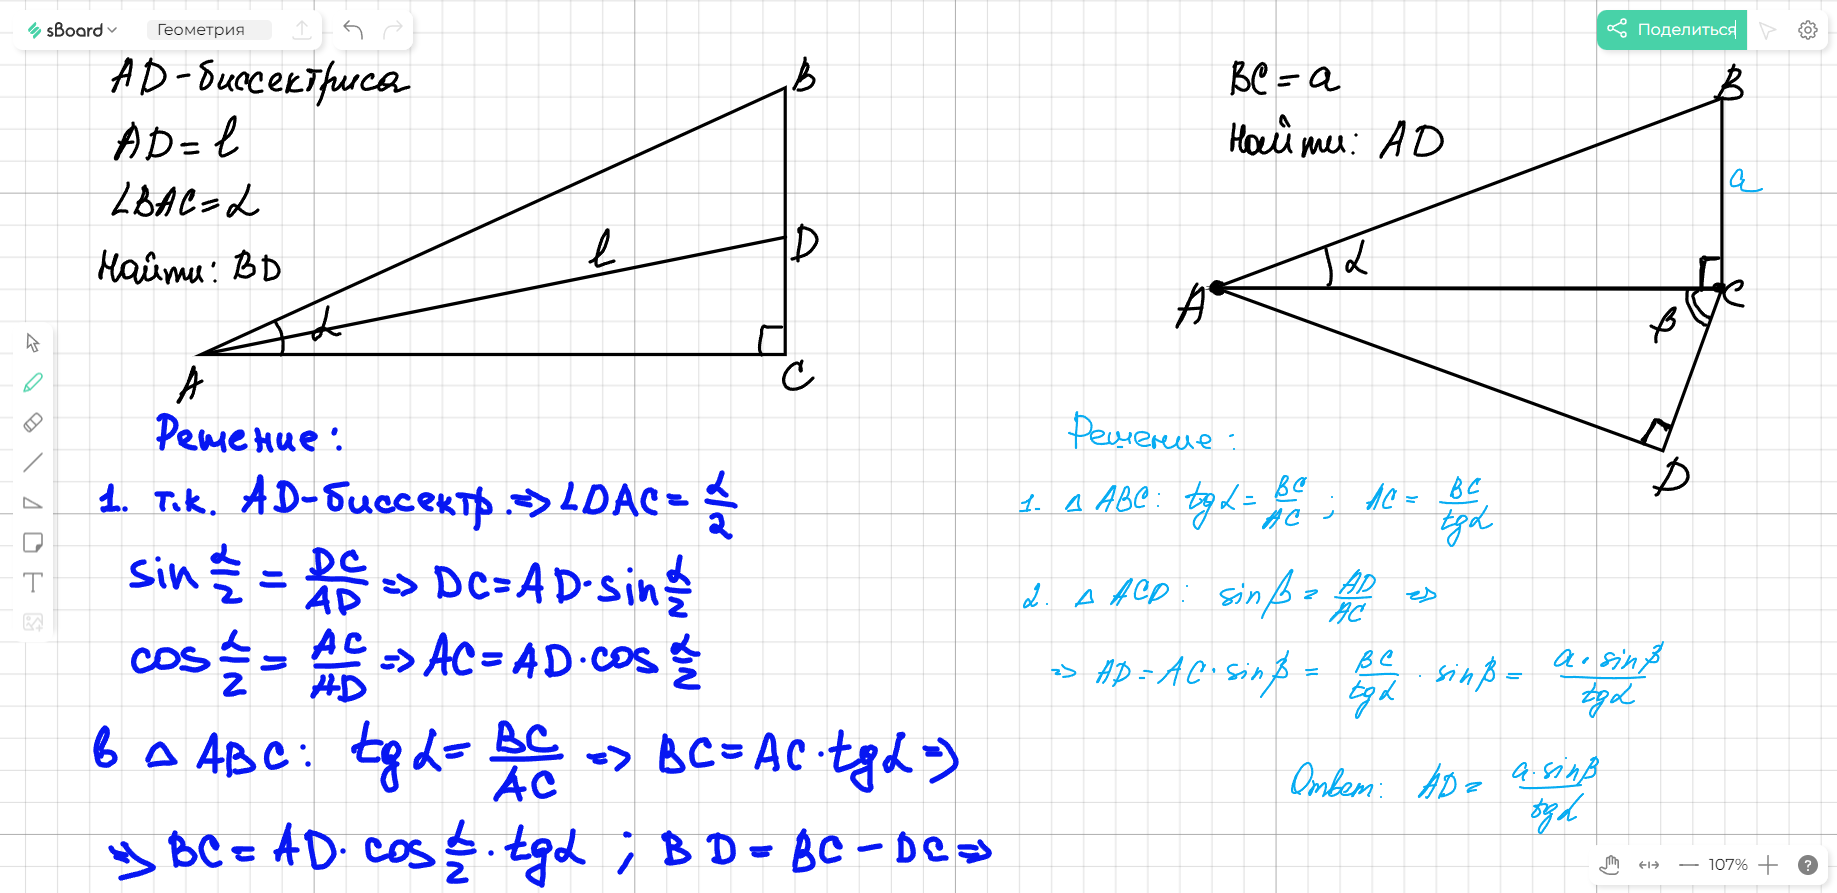 sBoard
Геометрия
Поделиться
AD - биссектриса
AD = l
∠BAC = α
Найти: BD
B
D
l
α
A
C
Решение:
1. т.к. AD - биссектр. => ∠DAC = α/2
sin α/2 = DC/AD => DC = AD · sin α/2
cos α/2 = AC/AD => AC = AD · cos α/2
в △ ABC: tg α = BC/AC => BC = AC · tg α =>
=> BC = AD · cos α/2 · tg α ; BD = BC - DC =>
BC = a
Найти: AD
B
a
α
A
C
β
D
Решение:
1. △ ABC: tg α = BC/AC ; AC = BC/tg α
2. △ ACD: sin β = AD/AC =>
=> AD = AC · sin β = BC/tg α · sin β = a · sin β/tg α
Ответ: AD = a · sin β/tg α
107%